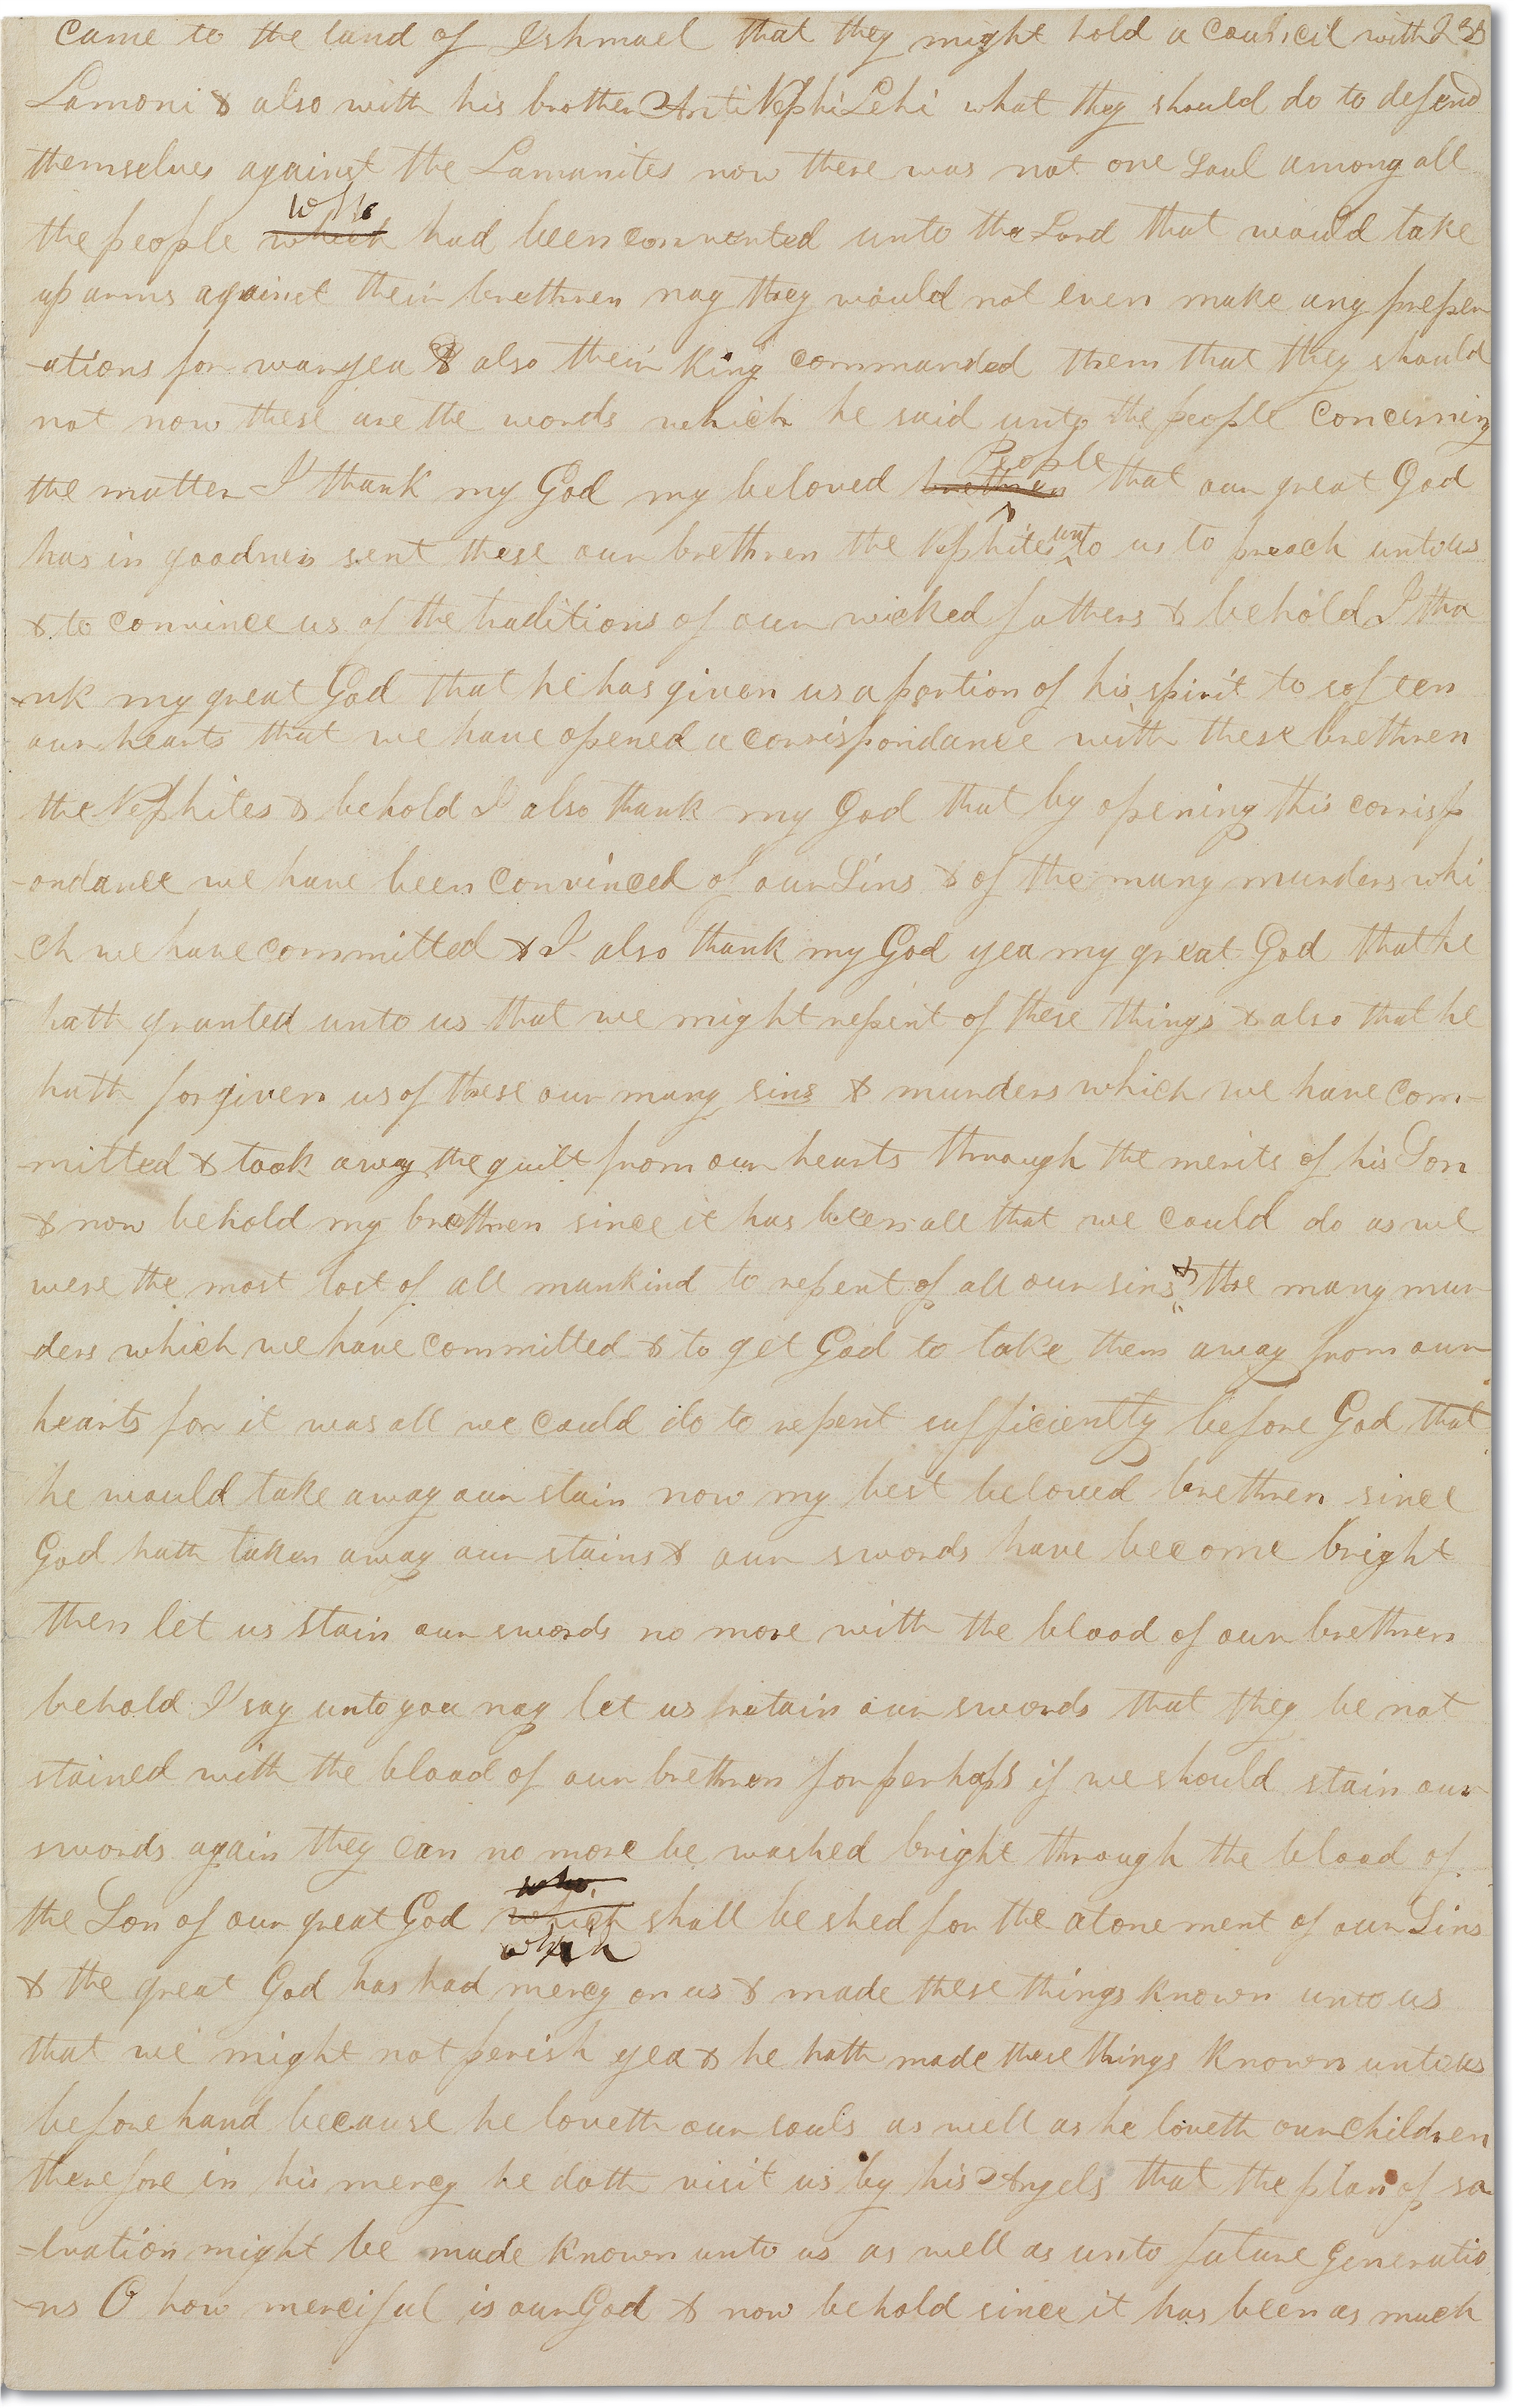 came to the land of Ishmael that they might hold a council with
Lamoni & also with his brother Anti Nephi Lehi what they should do to defend
themselves against the Lamanites now there was not one Soul among all
who
the people which had been converted unto the Lord that would take
up arms against their brethren nay they would not even make any preper
-ations for war yea & also their King commanded them that they should
not now these are the words which he said unto the people concerning
People
the matter I thank my God my beloved brethren that our great God
has in goodness sent these our brethren the Nephites unto us to preach unto us
& to convince us of the traditions of our wicked fathers & behold I tha
-nk my great God that he has given us a portion of his spirit to soften
our hearts that we have opened a corrispondance with these brethren
the Nephites & behold I also thank my God that by opening this corrisp
-ondance we have been convinced of our Sins & of the many murders whi
-ch we have committed & I also thank my God yea my great God that he
hath granted unto us that we might repent of these things & also that he
hath forgiven us of these our many sins & murders which we have com-
-mitted & took away the guilt from our hearts through the merits of his Son
& now behold my brethren since it has been all that we could do as we
were the most lost of all mankind to repent of all our sins & the many mur
-ders which we have committed & to get God to take them away from our
hearts for it was all we could do to repent sufficiently before God that
he would take away our stain now my best beloved brethren since
God hath taken away our stains & our swords have become bright
then let us stain our swords no more with the blood of our brethren
behold I say unto you nay let us retain our swords that they be not
stained with the blood of our brethren for perhaps if we should stain our
swords again they can no more be washed bright through the blood of
who
the Son of our great God which shall be shed for the atonement of our Sins
which
& the great God has had mercy on us & made these things known unto us
that we might not perish yea & he hath made these things known unto us
before hand because he loveth our souls as well as he loveth our children
therefore in his mercy he doth visit us by his Angels that the plan of sa
-lvation might be made known unto us as well as unto future generatio
-ns O how merciful is our God & now behold since it has been as much